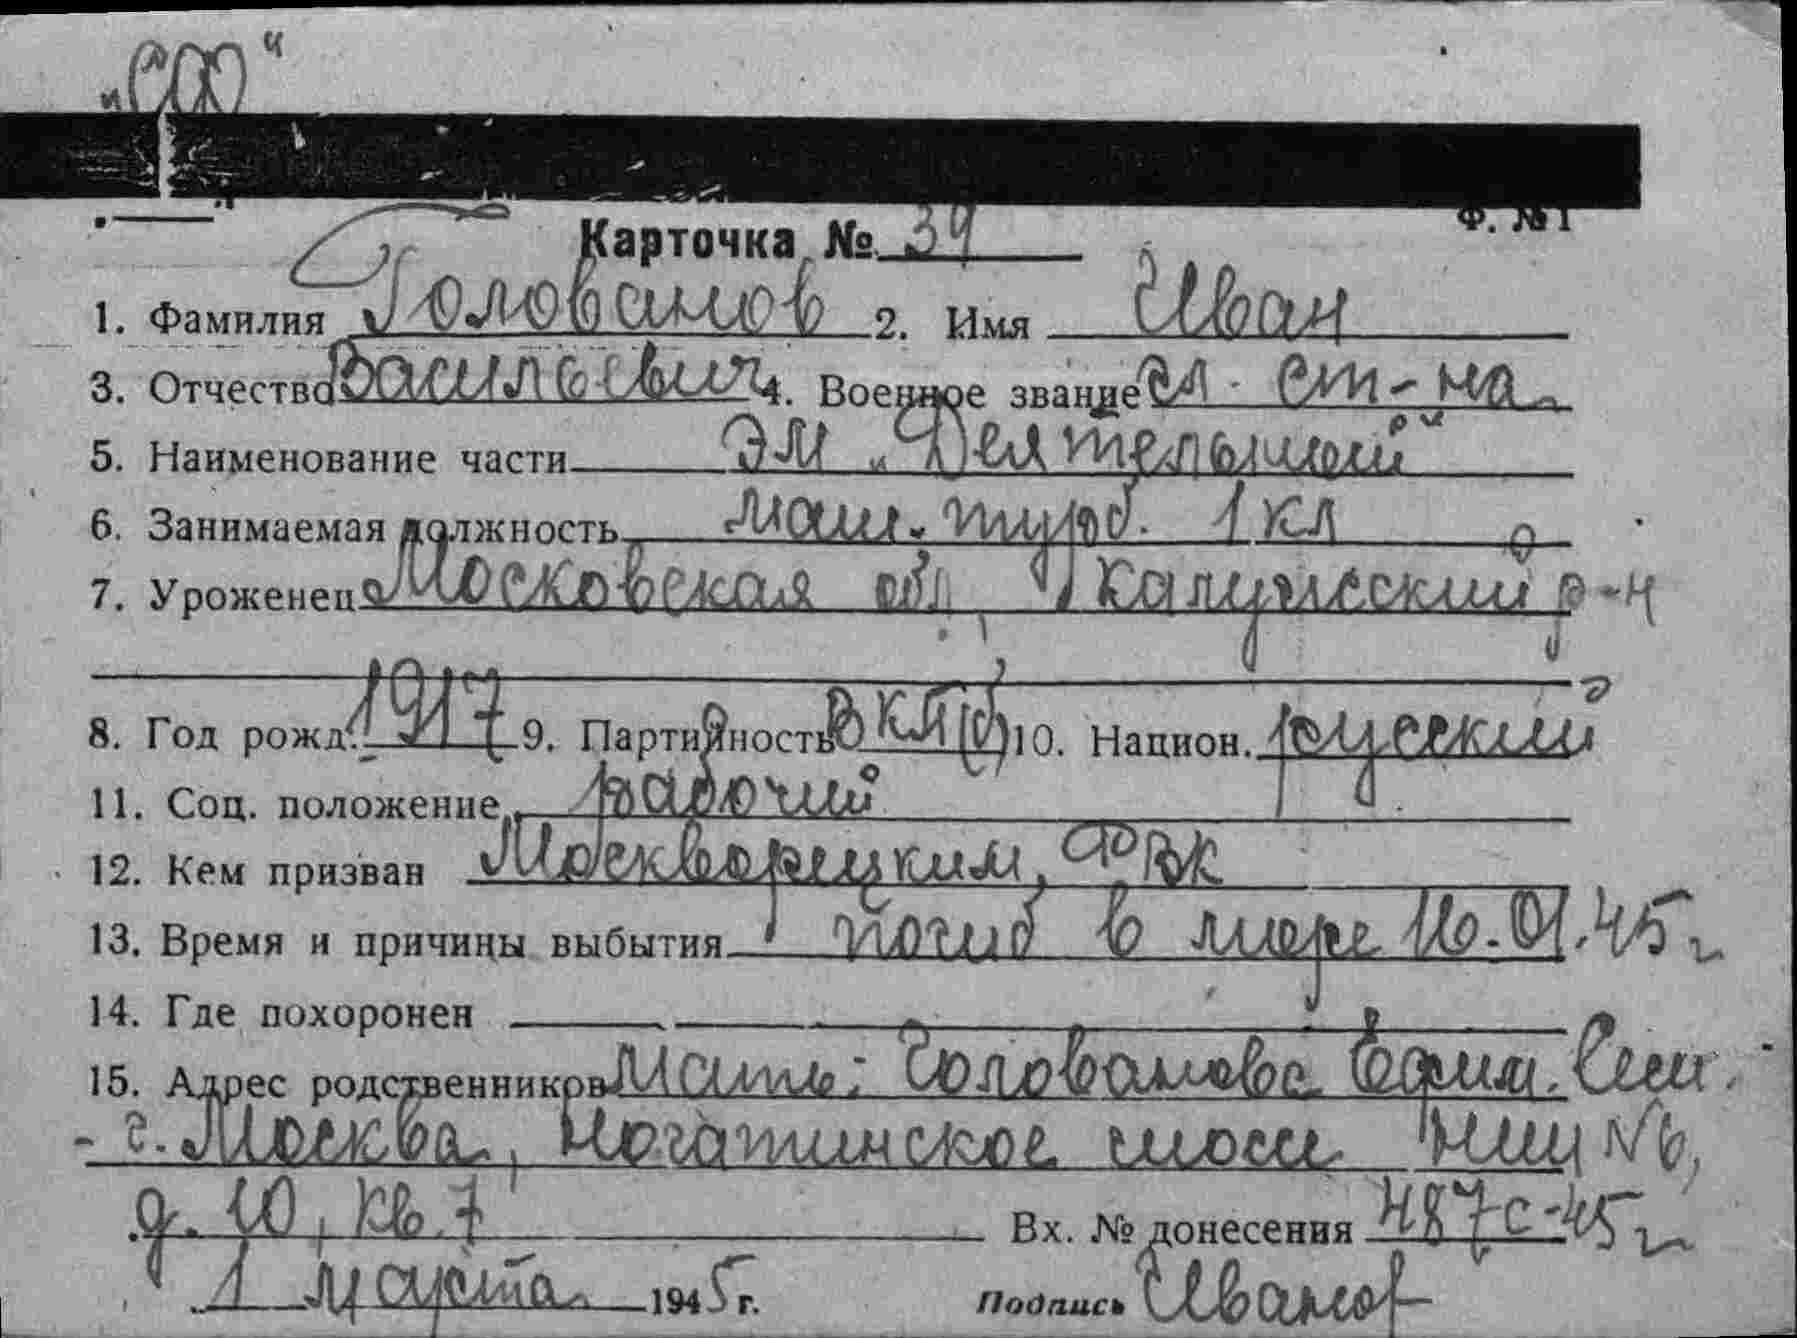 „СФ“
Ф. № 1
Карточка № 39
1. Фамилия Голованов 2. Имя Иван
3. Отчество Васильевич 4. Военное звание гл. ст-на
5. Наименование части ЭМ „Деятельный“
6. Занимаемая должность маш. турб. 1 кл
7. Уроженец Московская обл, Калужский р-н
8. Год рожд. 1917 9. Партийность ВКП(б) 10. Национ. русский
11. Соц. положение рабочий
12. Кем призван Москворецким РВК
13. Время и причины выбытия погиб в море 16.01.45 г
14. Где похоронен
15. Адрес родственников Мать: Голованова Ефим. Сем.
- г. Москва, Ногатинское шоссе №6,
д. 10, кв. 7 Вх. № донесения 487с-45 г
1 марта 1945 г. Подпись Иванов